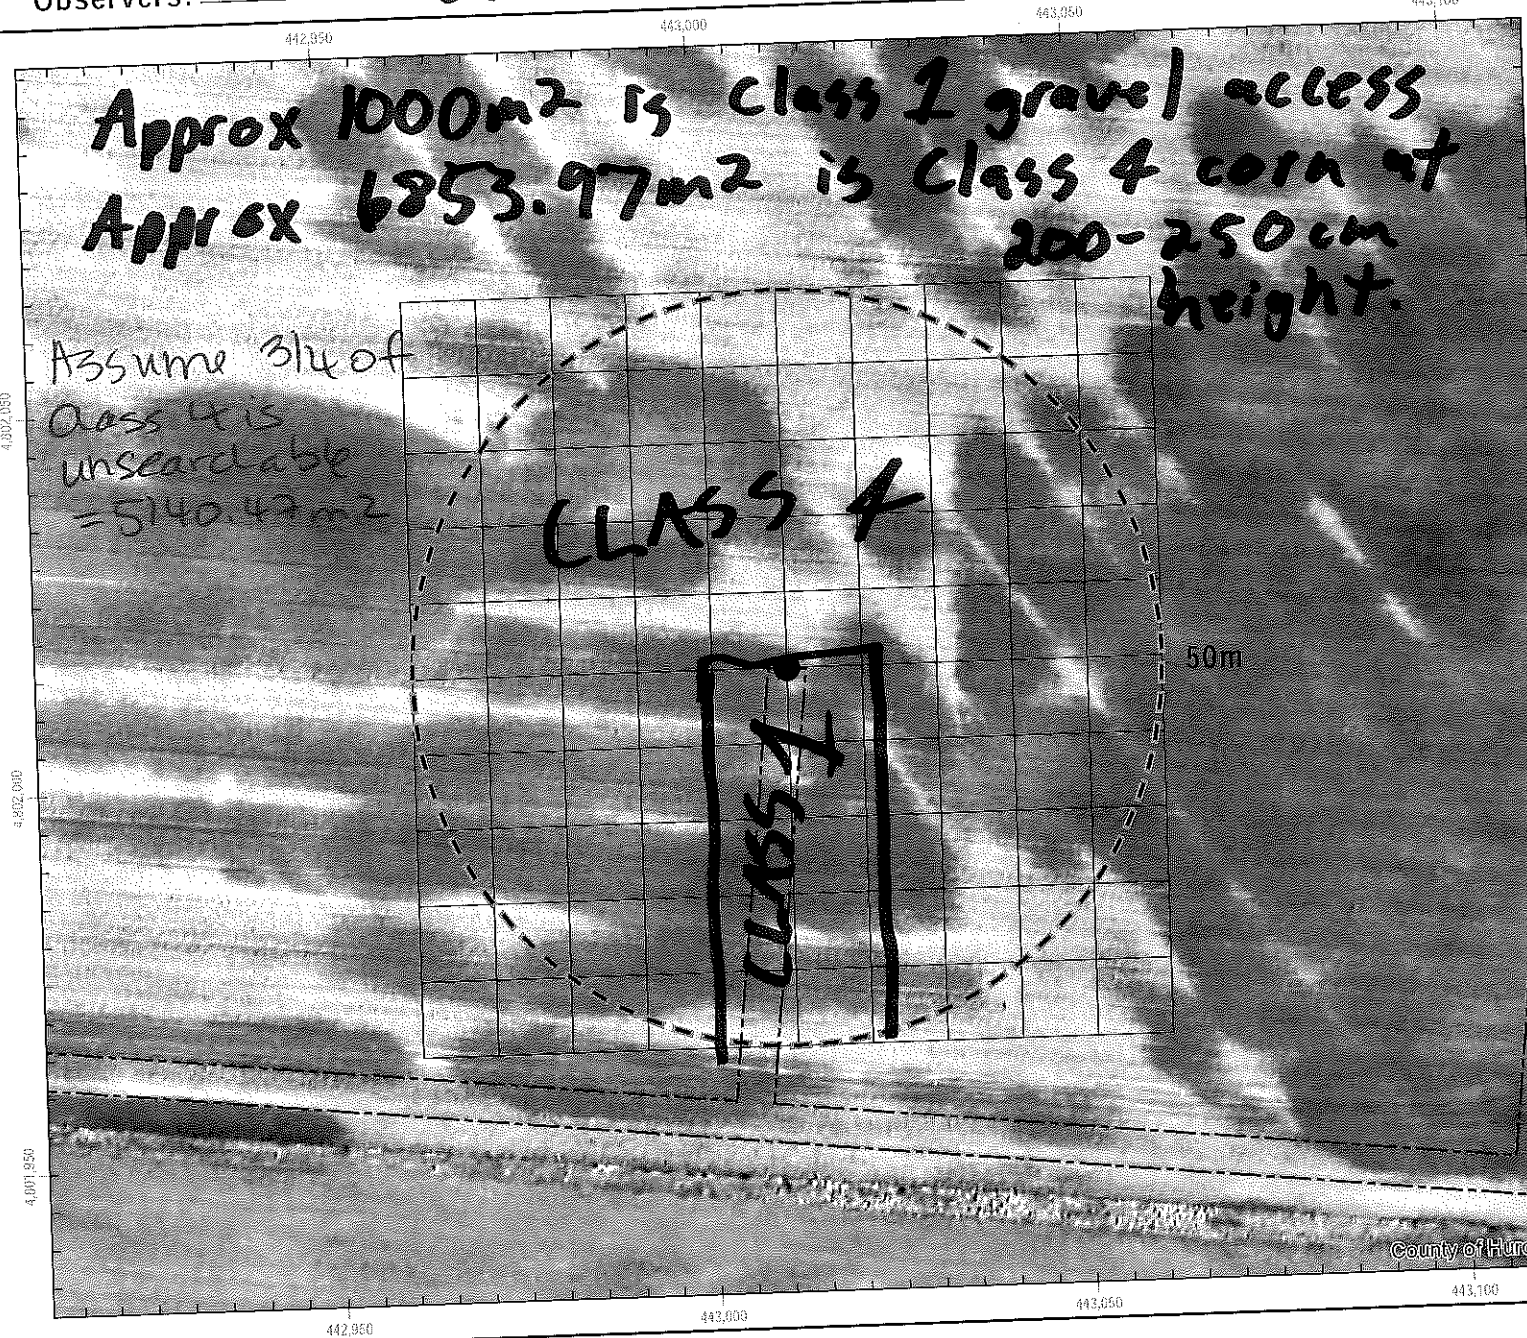 Observers:
442,950
443,000
443,050
443,100
Approx 1000m² is Class 1 gravel access
Approx 6853.97m² is Class 4 corn at
200-250cm
height.
Assume 3/4 of
class 4 is
unsearchable
=5140.47m²
4,802,050
CLASS 4
50m
CLASS 1
4,802,000
4,801,950
County of Huro
442,950
443,000
443,050
443,100